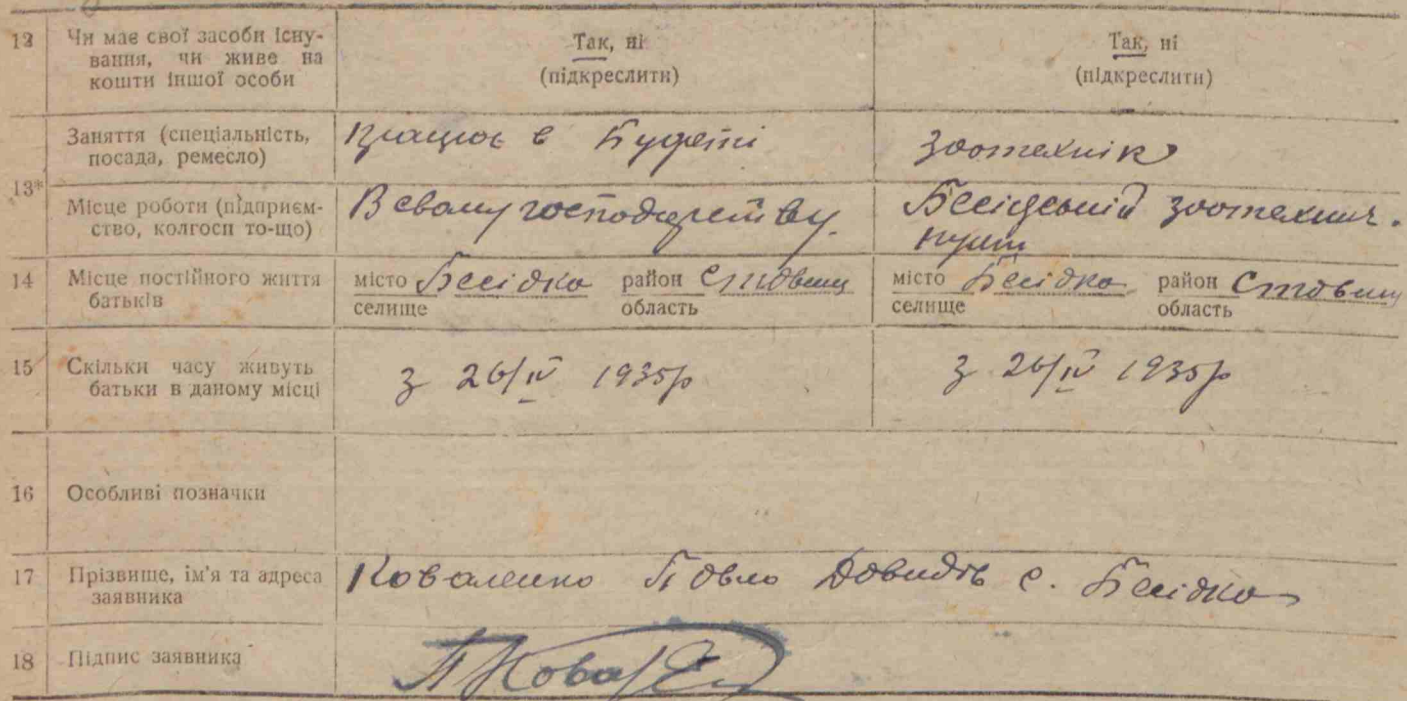 12 Чи має свої засоби існу-
вання, чи живе на
кошти іншої особи
Так, ні
(підкреслити)
Так, ні
(підкреслити)
13* Заняття (спеціальність,
посада, ремесло)
Працює в буфеті
зоотехнік
Місце роботи (підприєм-
ство, колгосп то-що)
В свому господарству.
Бесідський зоотехнич.
пункт
14 Місце постійного життя
батьків
місто Бесідка район Ставищ
селище область
місто Бесідка район Ставищ
селище область
15 Скільки часу живуть
батьки в даному місці
З 26/IV 1935р
З 26/IV 1935р
16 Особливі позначки
17 Прізвище, ім'я та адреса
заявника
Коваленко Павло Давидів с. Бесідка
18 Підпис заявника